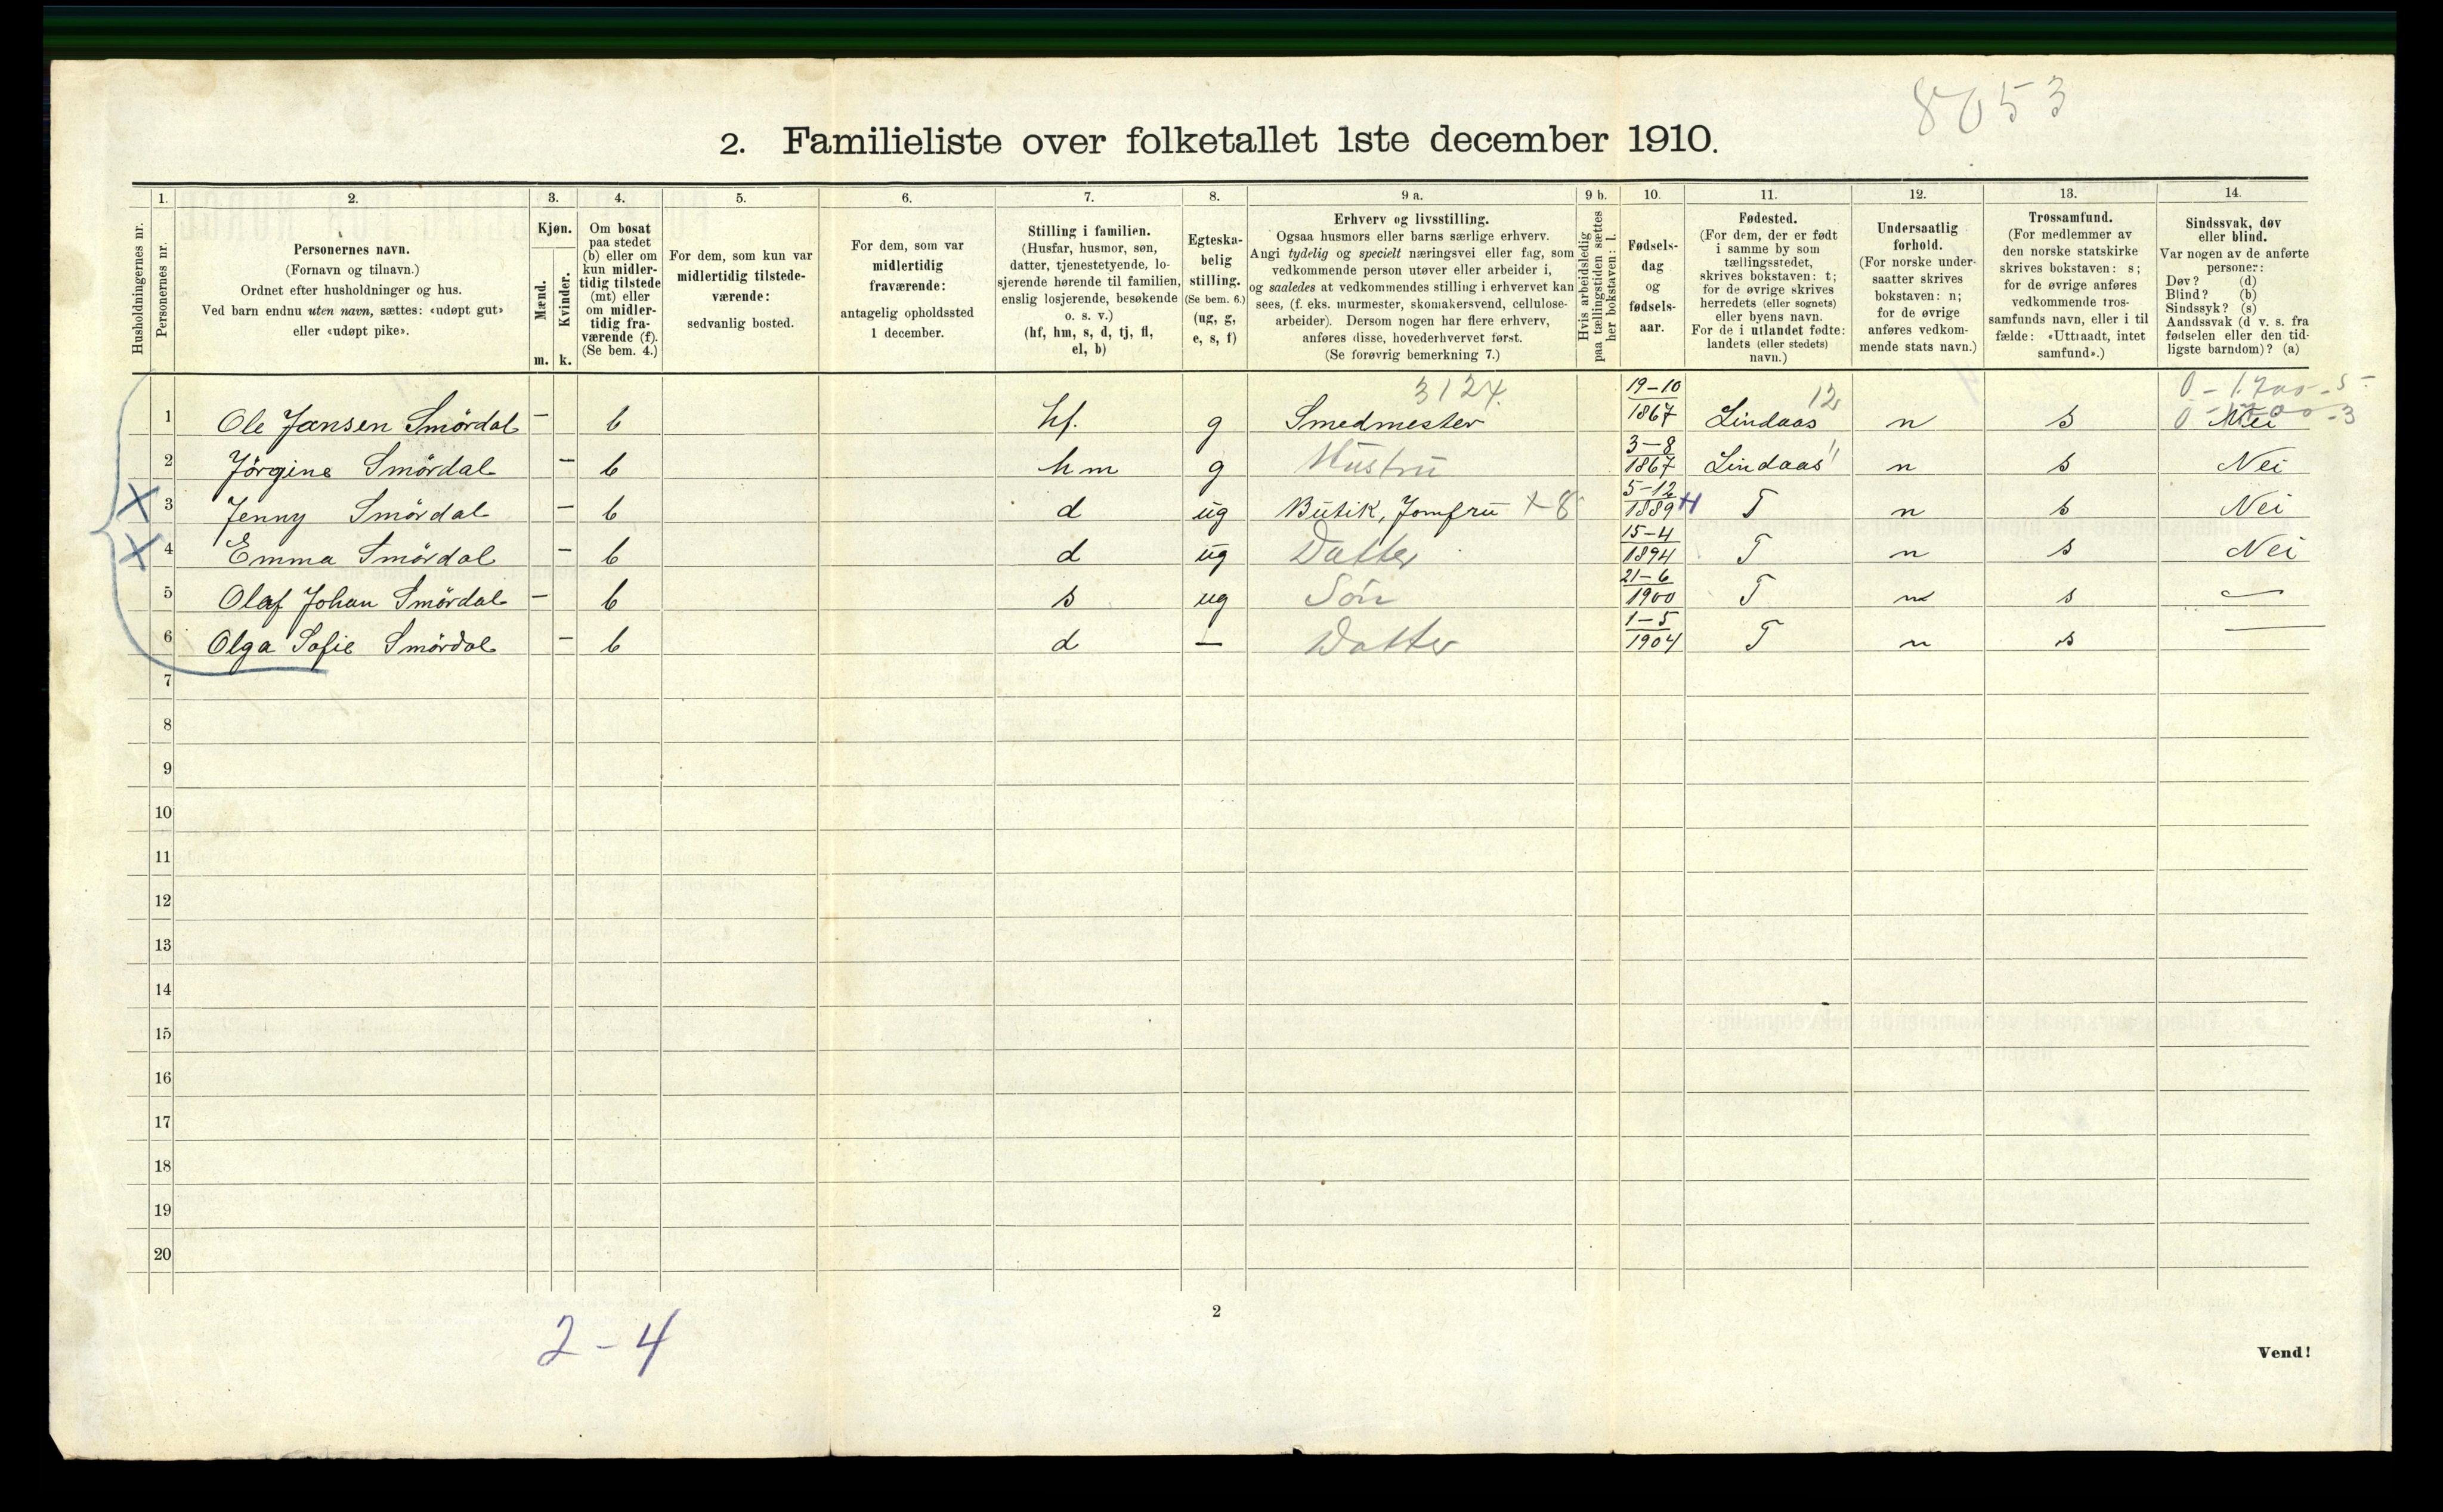 8053
2. Familieliste over folketallet 1ste december 1910.
Husholdningernes nr.
1. Personernes nr.
2. Personernes navn.
(Fornavn og tilnavn.)
Ordnet efter husholdninger og hus.
Ved barn endnu uten navn, sættes: «udøpt gut»
eller «udøpt pike».
3. Kjøn.
Mænd. m.
Kvinder. k.
4. Om bosat
paa stedet
(b) eller om
kun midler-
tidig tilstede
(mt) eller
om midler-
tidig fra-
værende (f).
(Se bem. 4.)
5. For dem, som kun var
midlertidig tilstede-
værende:
sedvanlig bosted.
6. For dem, som var
midlertidig
fraværende:
antagelig opholdssted
1 december.
7. Stilling i familien.
(Husfar, husmor, søn,
datter, tjenestetyende, lo-
sjerende hørende til familien,
enslig losjerende, besøkende
o. s. v.)
(hf, hm, s, d, tj, fl,
el, b)
8. Egteska-
belig
stilling.
(Se bem. 6.)
(ug, g,
e, s, f)
9 a. Erhverv og livsstilling.
Ogsaa husmors eller barns særlige erhverv.
Angi tydelig og specielt næringsvei eller fag, som
vedkommende person utøver eller arbeider i,
og saaledes at vedkommendes stilling i erhvervet kan
sees, (f. eks. murmester, skomakersvend, cellulose-
arbeider). Dersom nogen har flere erhverv,
anføres disse, hovederhvervet først.
(Se forøvrig bemerkning 7.)
9 b. Hvis arbeidsledig
paa tællingstiden sættes
her bokstaven: l.
10. Fødsels-
dag
og
fødsels-
aar.
11. Fødested.
(For dem, der er født
i samme by som
tællingsstedet,
skrives bokstaven: t;
for de øvrige skrives
herredets (eller sognets)
eller byens navn.
For de i utlandet fødte:
landets (eller stedets)
navn.)
12. Undersaatlig
forhold.
(For norske under-
saatter skrives
bokstaven: n;
for de øvrige
anføres vedkom-
mende stats navn.)
13. Trossamfund.
(For medlemmer av
den norske statskirke
skrives bokstaven: s;
for de øvrige anføres
vedkommende tros-
samfunds navn, eller i til
fælde: «Uttraadt, intet
samfund».)
14. Sindssvak, døv
eller blind.
Var nogen av de anførte
personer:
Døv? (d)
Blind? (b)
Sindssyk? (s)
Aandssvak (d v. s. fra
fødselen eller den tid-
ligste barndom)? (a)
3124. 12 0 - 1.700 - 5 -
1 Ole Jansen Smördal — b hf. g Smedmester 19-10 1867 Lindaas n s Nei
2 Jörgine Smördal — b hm g Hustru 3-8 1867 Lindaas " n s Nei
X 3 Jenny Smördal — b d ug Butik, Jomfru +8 5-12 1889 H T n s Nei
X 4 Emma Smördal — b d ug Datter 15-4 1894 T n s Nei
5 Olaf Johan Smördal — b s ug Sön 21-6 1900 T n s —
6 Olga Sofie Smördal — b d — Datter 1-5 1904 T n s —
7
8
9
10
11
12
13
14
15
16
17
18
19
20
2
2-4
Vend!